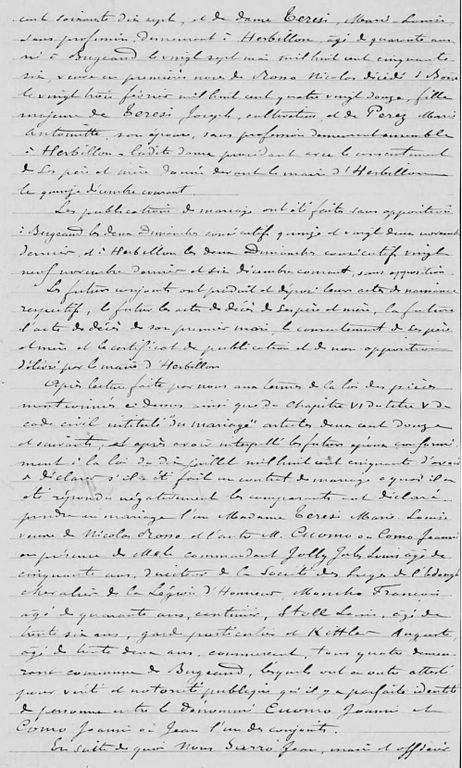 cent soixante dix sept, et de dame Teresi, Marie Louise
sans profession demeurant à Herbillon, âgée de quarante ans
née à Bugeaud le vingt sept mai mil huit cent cinquante
six, veuve en premières noces de Rosso Nicolas décédé à Bône
le vingt trois février mil huit cent quatre vingt douze, fille
majeure de Teresi Joseph, cultivateur et de Perez Marie
Antoinette, son épouse, sans profession demeurant ensemble
à Herbillon. Ladite dame procédant avec le consentement
de ses père et mère donné devant le maire d'Herbillon
le quinze décembre courant
Les publications de mariage ont été faites sans opposition
à Bugeaud les deux dimanches consécutifs quinze et vingt deux novembre
dernier, et à Herbillon les deux Dimanches consécutifs vingt
neuf novembre dernier et six décembre courant, sans opposition
Les futurs conjoints ont produit et déposé leurs actes de naissance
respectifs, le futur les actes de décès de ses père et mère, la future
l'acte de décès de son premier mari, le consentement de ses père
et mère et le certificat de publication et de non opposition
délivré par le maire d'Herbillon
Après lecture faite par nous aux termes de la loi des pièces
mentionnées ci dessus ainsi que du chapitre VI du titre V du
code civil intitulé "du mariage" articles deux cent douze
et suivants, et après avoir interpellé les futurs époux conformé
ment à la loi du dix juillet mil huit cent cinquante d'avoir
à déclarer s'il a été fait un contrat de mariage à quoi il a
été répondu négativement les comparants ont déclaré
prendre en mariage l'un Madame Teresi Marie Louise
veuve de Nicolas Rosso et l'autre M. Cuomo ou Como Joanni
en présence de M. le commandant Jolly Jules Louis âgé de
cinquante ans, directeur de la Société des Lièges de l'Edough
chevalier de la Légion d'Honneur François
âgé de quarante ans, cantinier, Stoll Louis, âgé de
trente six ans, garde particulier et Kettler Auguste
âgé de trente deux ans, commerçant, tous quatre demeu
rant commune de Bugeaud, lesquels ont en outre attesté
pour vérité et notoriété publique qu'il y a parfaite identité
de personne entre le dénommé Cuomo Joanni et
Como Joanni ou Jean l'un des conjoints.
En suite de quoi Nous Sarrò Jean, maire et officier